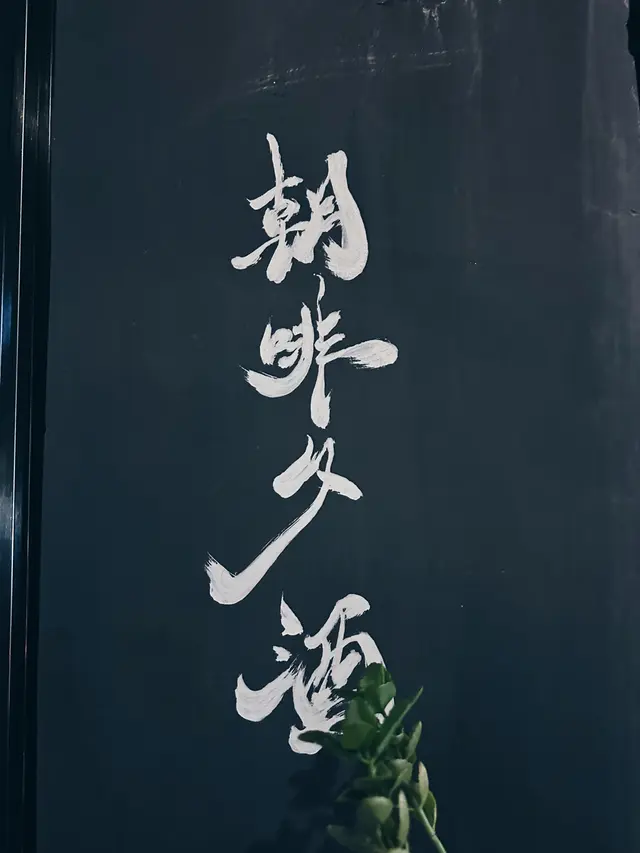 朝啡夕酒